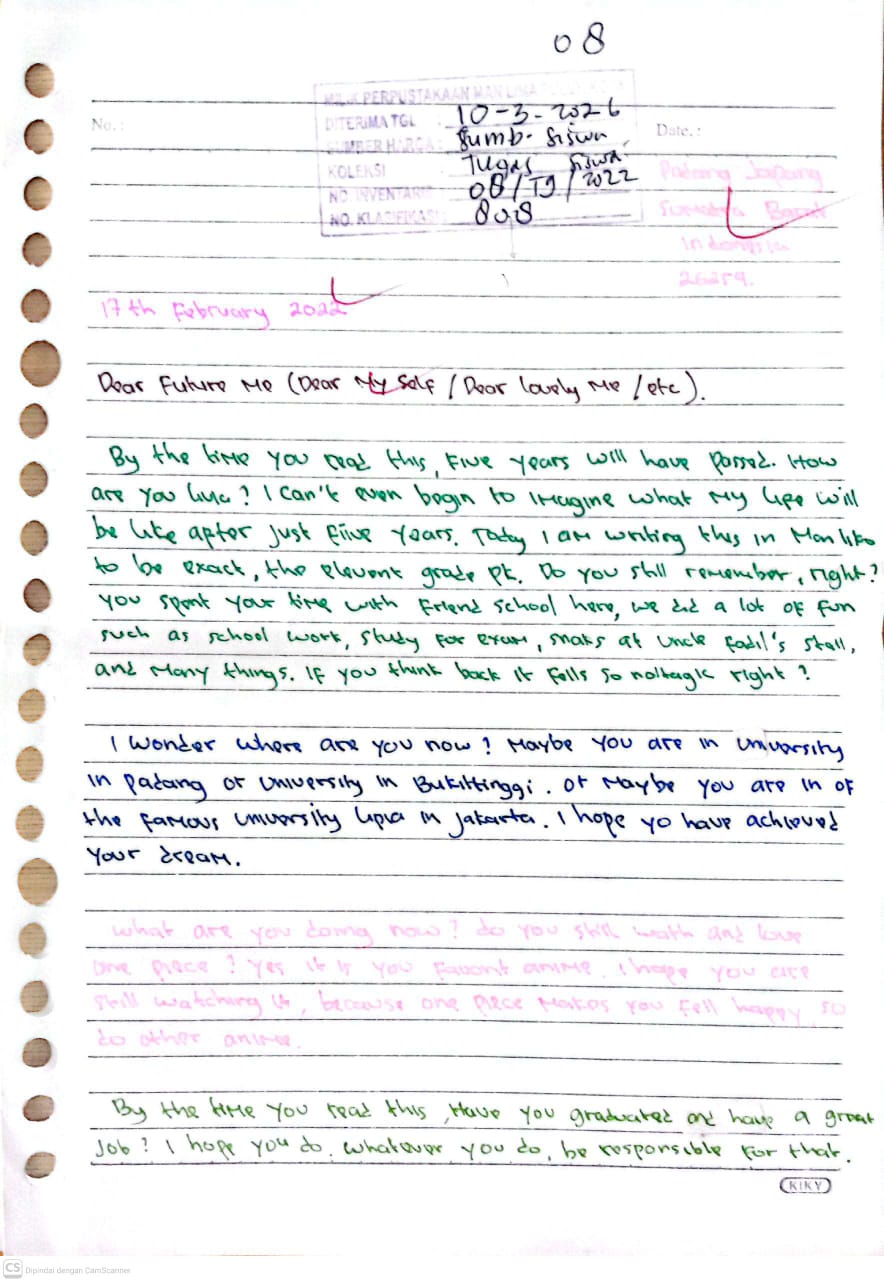 08
MILIK PERPUSTAKAAN MAN LIMA PULUH KOTA
DITERIMA TGL : 10-3-2026
SUMBER HARGA : Sumb. Siswa
KOLEKSI : Tugas Siswa
NO. INVENTARIS : 08/TS/2022
NO. KLASIFIKASI : 808
No. :
Date. :
Padang Japang
Sumatra Barat
Indonesia
26259.
17th February 2022
Dear Future Me (Dear My Self / Dear lovely Me / etc).
By the time you read this, Five years will have passed. How
are you live? I can't even begin to imagine what my life will
be like apter just fiive years. Today I am writing this in Manliko
to be exact, the elevent grade PK. Do you still remember, right?
you spent your time with friend school here, we did a lot of fun
such as school work, study for exam, snaks at uncle Fadil's stall,
and many things. If you think back it fells so noltagic right?
I wonder where are you now? Maybe you are in university
in Padang or University in Bukittinggi. or maybe you are in of
the famous university lipia in Jakarta. I hope yo have achieved
your dream.
what are you doing now? do you still wath and love
one piece? Yes it is you favorit anime. I hope you are
still watching it, because one piece makes you fell happy, so
do other anime.
By the time you read this, Have you graduated and have a great
Job? I hope you do. whatever you do, be responsible for that.
KIKY
CS Dipindai dengan CamScanner